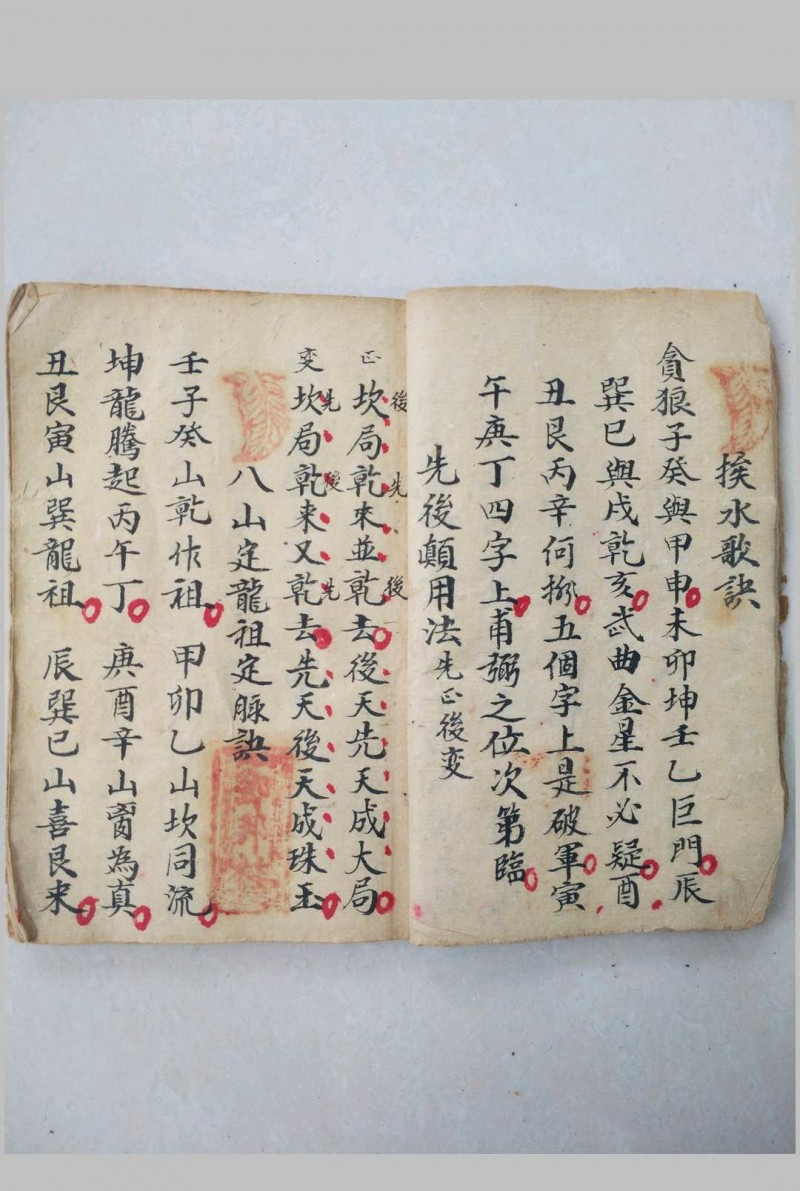 挨水歌訣
貪狼子癸與甲申未卯坤壬乙巨門辰
巽巳與戌乾亥武曲金星不必疑酉
丑艮丙辛何擬五個字上是破軍寅
午庚丁四字上甫弼之位次第臨
先後顛用法先正後变
後 先 後
正 坎局乾來並乾去後天先天成大局
先 後 先
变 坎局乾来又乾去先天後天成珠玉
八山定龍祖定脉訣
壬子癸山乾作祖 甲卯乙山坎同流
坤龍騰起丙午丁 庚酉辛山為真
丑艮寅山巽龍祖 辰巽巳山喜艮来